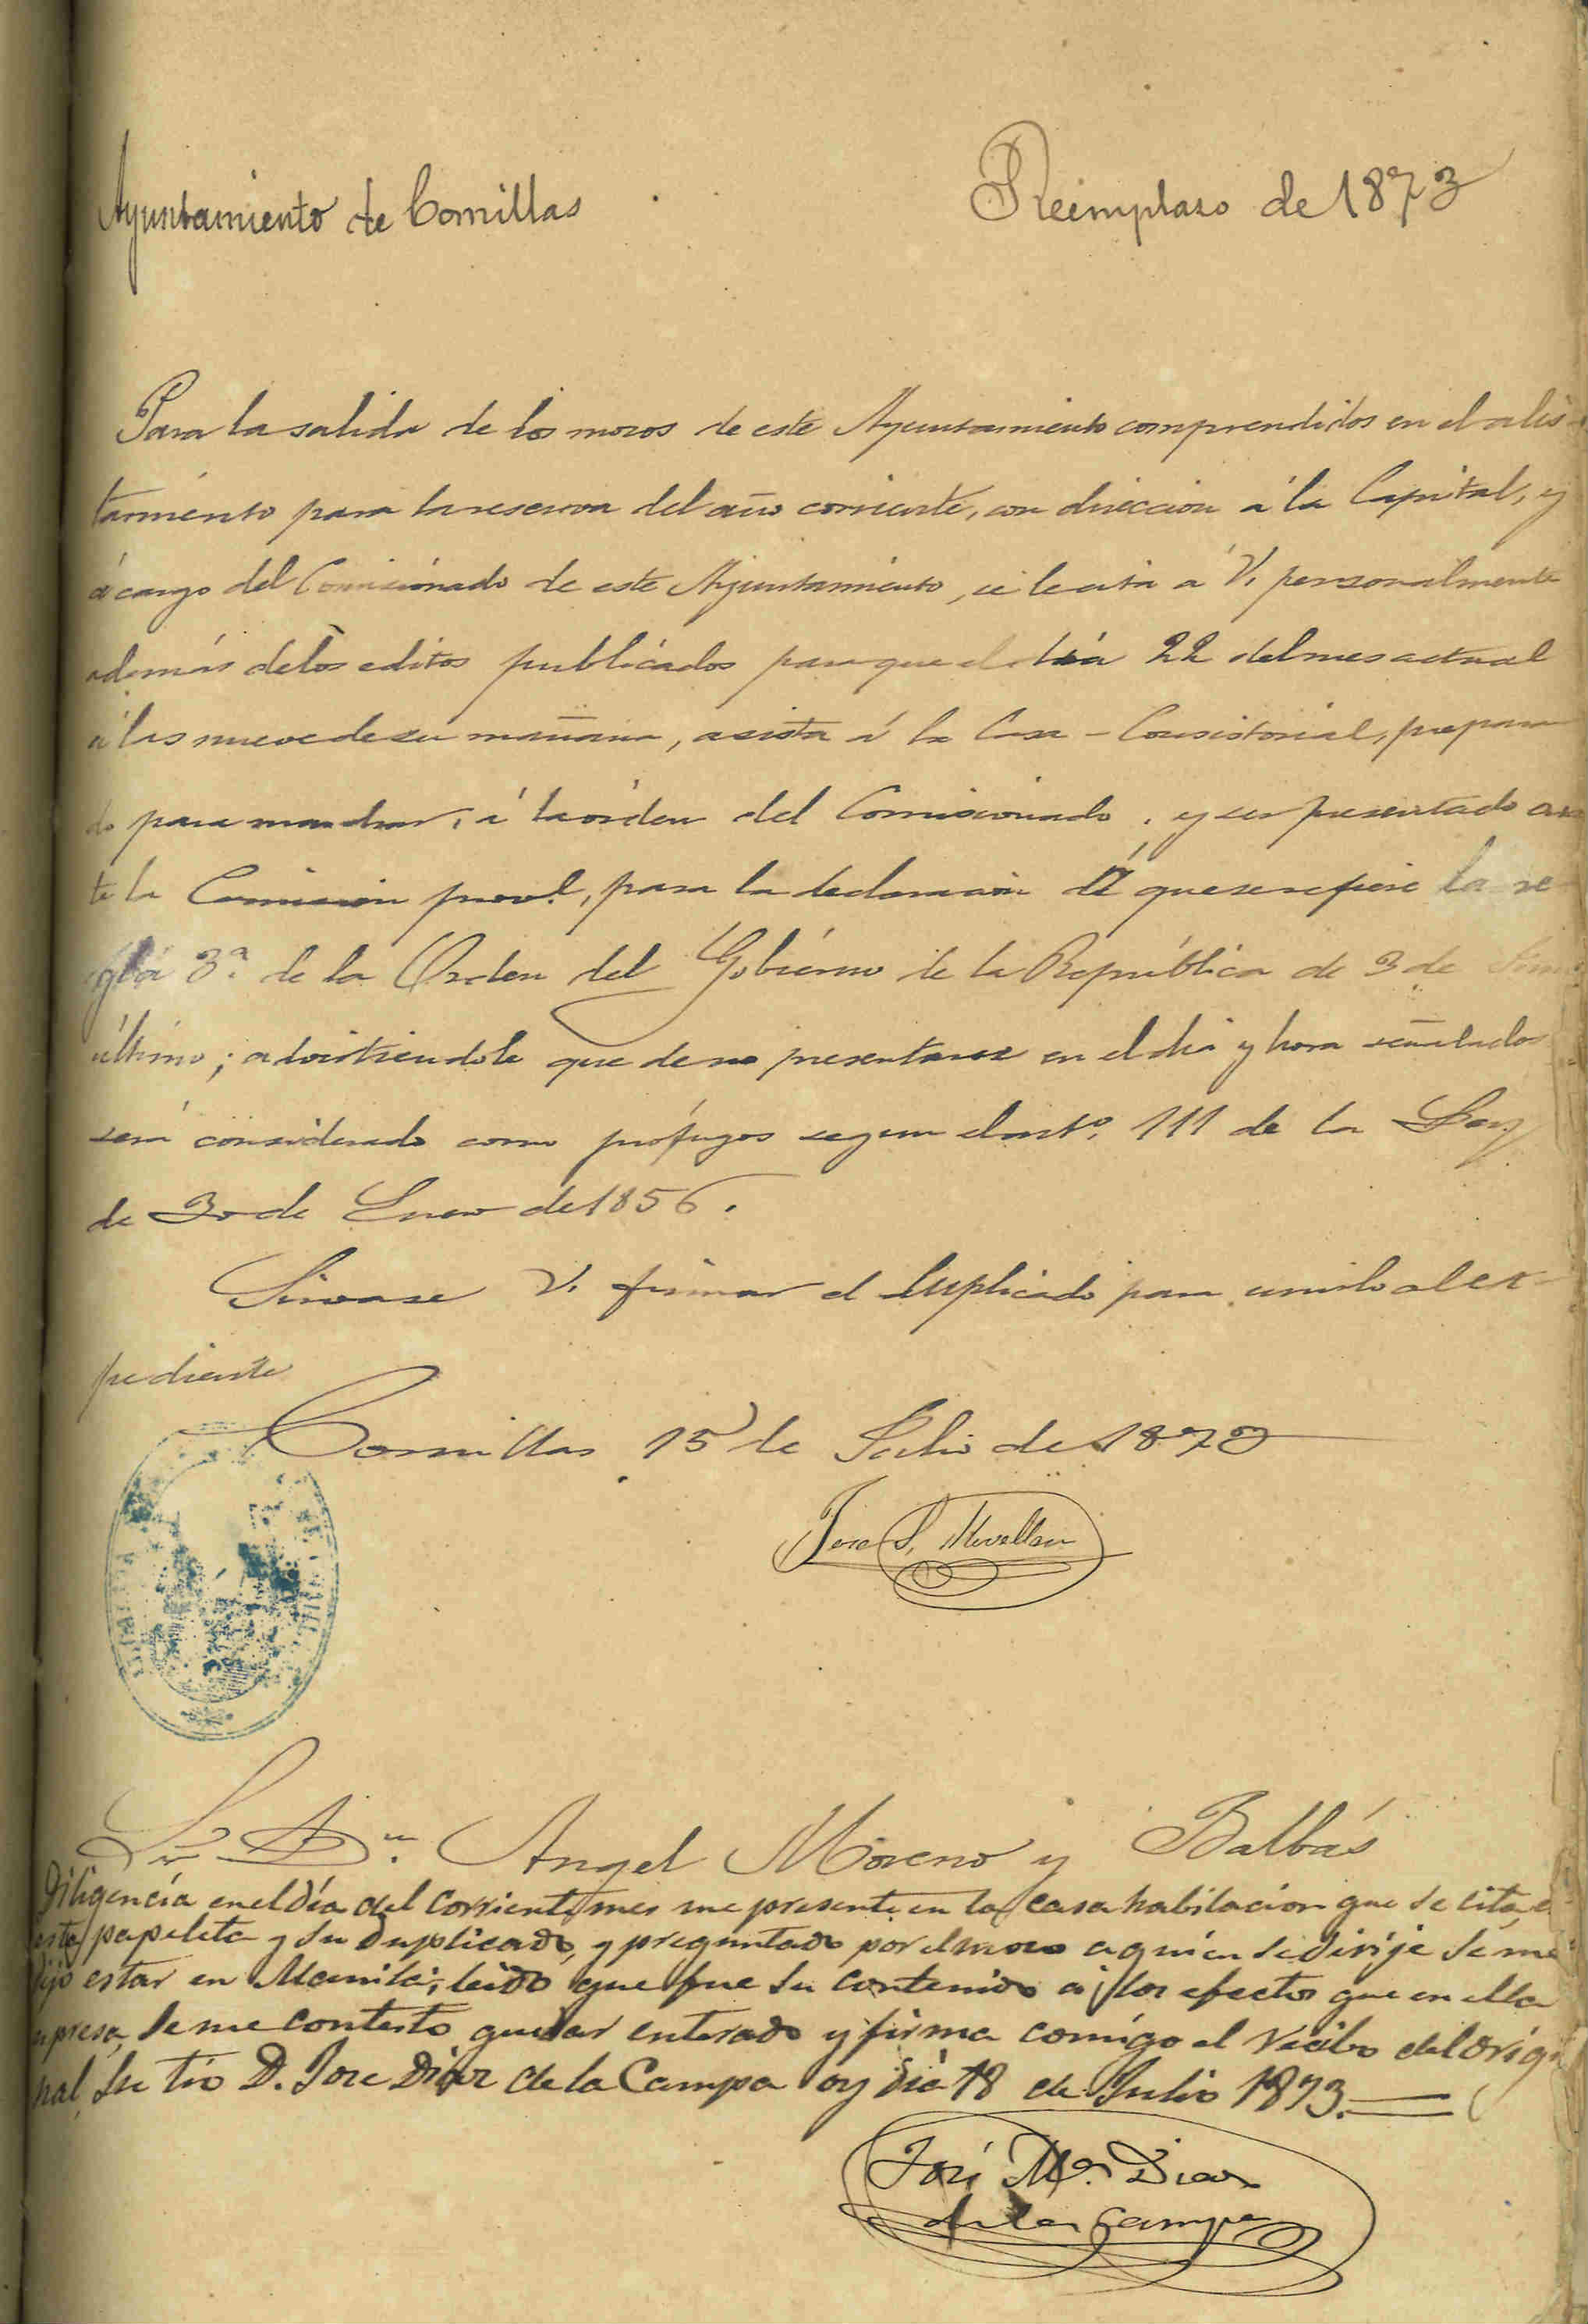 Ayuntamiento de Comillas
Reemplaso de 1873
Para la salida de los mozos de este Ayuntamiento comprendidos en el alis-
tamiento para la reserva del año corriente, con direccion á la Capital, y
á cargo del Comisionado de este Ayuntamiento, se le cita á V. personalmente
además de los editos publicados para que el dia 22 del mes actual
á las nueve de su mañana, asista á la Casa-Consistorial, prepara
do para marchar, á la orden del Comisionado, y ser presentado an
te la Comision provl, para la declaracion á que se refiere la re-
gla 3ª. de la Orden del Gobierno de la República de 3 de
último; advirtiendole que de no presentarse en el dia y hora señalados
será considerado como prófugos segun el artº. 111 de la Ley
de 30 de Enero de 1856.
Sirvase V. firmar el duplicado para unirlo al ex-
pediente
Comillas 15 de Julio de 1873
Jose S. Movellan
Sr. Dn. Angel Moreno y Balbás
Diligencía en el Día del Corriente mes me presente en la casa habitacion que se cita, e
esta papeleta y su Duplicado, y preguntado por el moso a quien se dirije se me
dijo estar en Manila; leido que fue su contenido a los efectos que en ella
espresa, se me contesto quedar enterado y firma comigo el recibo del origi
nal, su tio D. Jose Diaz de la Campa oy dia 18 de Julio 1873.
José Mª. Diaz
de la Campa